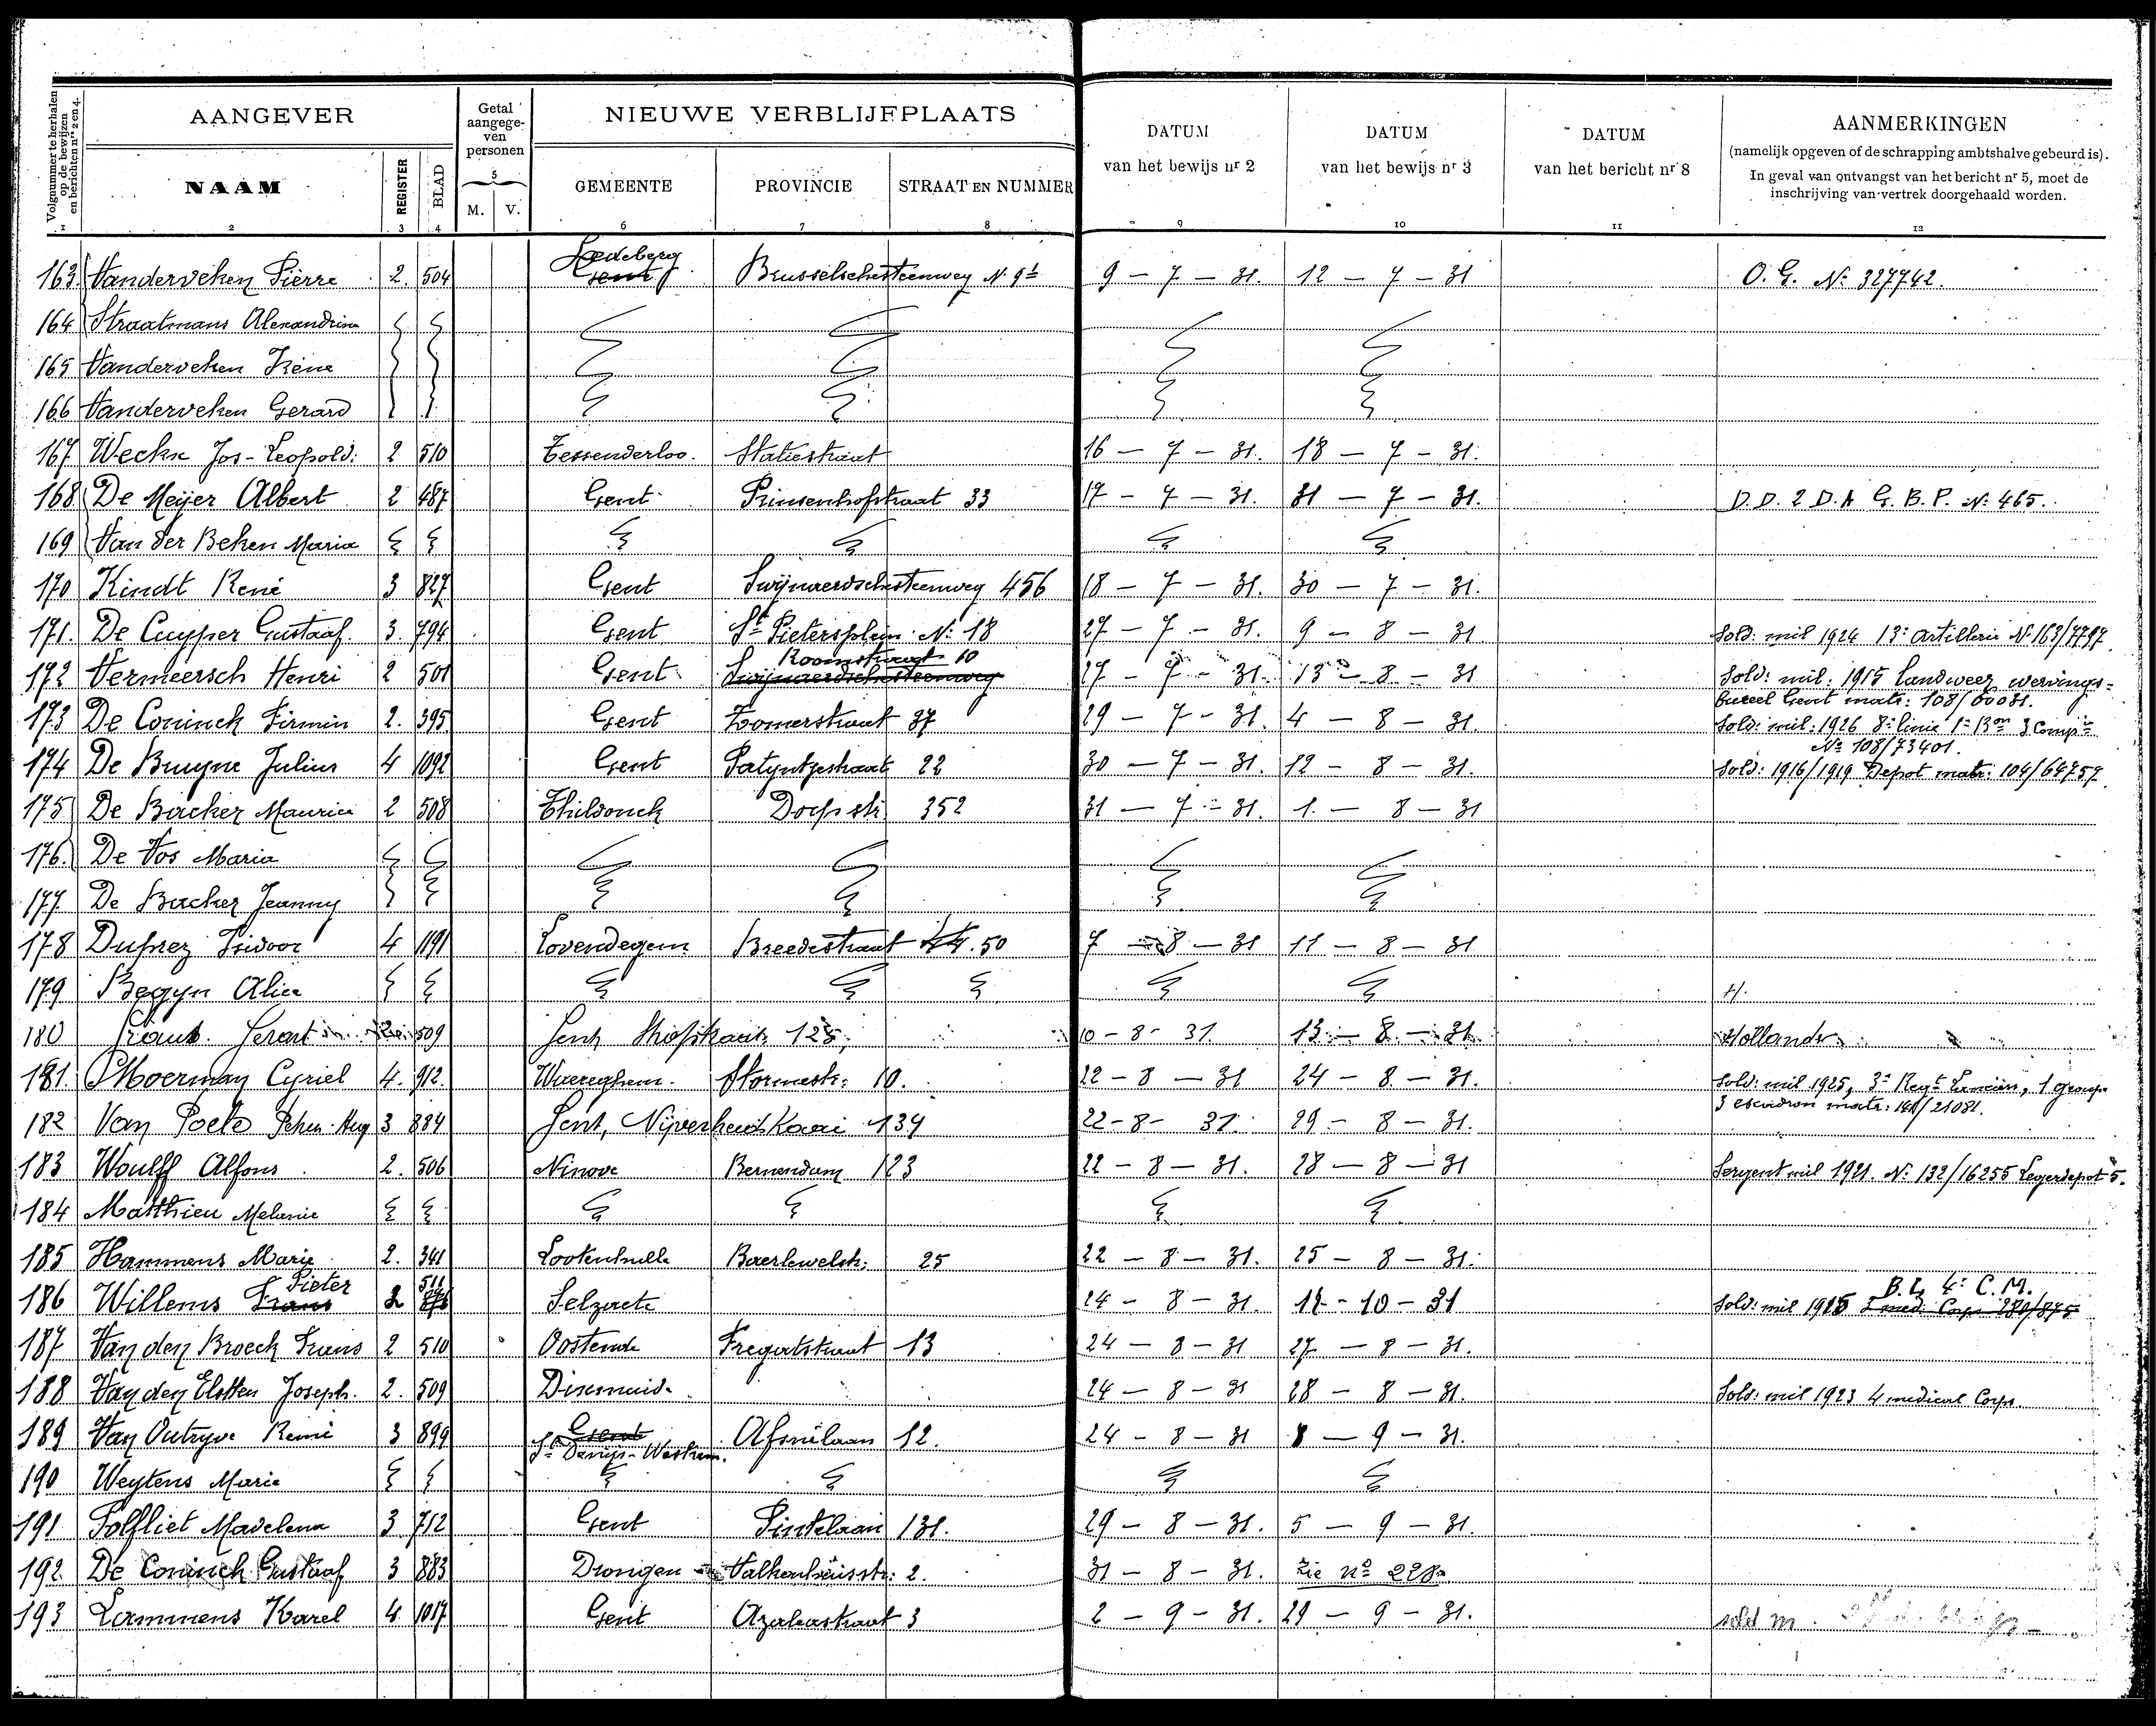 Volgnummer te herhalen op de bewijzen en berichten nrs 2 en 4.
AANGEVER
Getal aangege-ven personen
NIEUWE VERBLIJFPLAATS
DATUM van het bewijs nr 2
DATUM van het bewijs nr 3
DATUM van het bericht nr 8
AANMERKINGEN
(namelijk opgeven of de schrapping ambtshalve gebeurd is).
In geval van ontvangst van het bericht nr 5, moet de
inschrijving van vertrek doorgehaald worden.
NAAM REGISTER BLAD M. V. GEMEENTE PROVINCIE STRAAT EN NUMMER
1 2 3 4 5 6 7 8 9 10 11 12
163 Vanderveken Pierre 2. 504 Ledeberg Gent Brusselschesteenweg N. 9b 9 - 7 - 31. 12 - 7 - 31 O. G. No 327742.
164 Straatmans Alexandrina
165 Vanderveken Irène
166 Vanderveken Gerard
167 Weckx Jos-Leopold: 2 510 Tessenderloo. Statiestraat 16 - 7 - 31. 18 - 7 - 31.
168 De Meijer Albert 2 487 Gent Prinsenhofstraat 33 17 - 7 - 31. 31 - 7 - 31. D.D. 2 D.A G.B.P. No 465.
169 Van der Beken Maria
170 Kindt René 3 827 Gent Swijnaerdschesteenweg 456 18 - 7 - 31. 30 - 7 - 31.
171. De Cuyper Gustaaf. 3. 794 Gent St Pietersplein No 18 27 - 7 - 31. 9 - 8 - 31 Sold: mil 1924 13e Artillerie No 163/7797.
172 Vermeersch Henri 2 501 Gent Roomstraat 10 Swijnaerdschesteenweg 27 - 7 - 31. 13 - 8 - 31 Sold: mil: 1915 Landweer wervings=
bureel Gent matr: 108/60031.
173 De Coninck Firmin 2. 395 Gent Zoomerstraat 37 29 - 7 - 31. 4 - 8 - 31. Sold: mil: 1926 8e linie 1e Bon 3 Compie
No 108/73401.
174 De Bruyne Julius 4 1092 Gent Patijntjestraat 22 30 - 7 - 31. 12 - 8 - 31. Sold: 1916/1919 Depot matr: 104/64757.
175 De Backer Maurice 2 508 Thildonck Dorpstr 352 31 - 7 - 31. 1. - 8 - 31
176. De Vos Maria
177. De Backer Jeanny
178 Duprez Isidoor 4 1191 Lovendegem Breedestraat 44. 50 7 - 8 - 31 11 - 8 - 31
179 Begyn Alice H.
180 509 Gent 125, 10 - 8 - 31. 13 - 8 - 31 Hollander
181 Moerman Cyriel 4. 912. Waereghem. Stormestr: 10. 22 - 8 - 31 24 - 8 - 31. Sold: mil 1925, 3e Regt Lanciers, 1 groupe
3 escadron matr: 141/21081.
182 Van Poele 3 884 Gent, Nijverheidkaai 134 22 - 8 - 31. 29 - 8 - 31.
183 Woulff Alfons 2. 506 Ninove Bernendam 123 22 - 8 - 31. 28 - 8 - 31 Sergent mil 1921. No 132/16255 Legerdepot 5.
184 Matthieu Melanie
185 Hammens Marie 2. 341 Lootenhulle Baerlewelstr: 25 22 - 8 - 31. 25 - 8 - 31.
186 Willems Pieter Frans 2 511 Selzaete 24 - 8 - 31. 12 - 10 - 31 B.L 4e C.M. Sold: mil 1925 2 med. Corps 280/875
187 Van den Broeck Frans 2 510 Oostende Fregatstraat 13 24 - 8 - 31 27 - 8 - 31.
188 Van den Elsken Joseph. 2. 509 Dixmuide 24 - 8 - 31 28 - 8 - 31. Sold: mil 1923 4 medical Corps.
189 Van Outryve Remi 3 899 Gent St Denijs-Westrem. Afsnélaan 12. 24 - 8 - 31 8 - 9 - 31.
190 Weytens Marie
191 Polfliet Madelena 3 712 Gent Pintelaan 131. 29 - 8 - 31. 5 - 9 - 31.
192. De Coninck Gustaaf 3 883 Drongen Valkenhuisstr: 2. 31 - 8 - 31. zie no 228
193 Lammens Karel 4 1017 Gent Azaleastraat 3 2 - 9 - 31. 29 - 9 - 31. sold m.